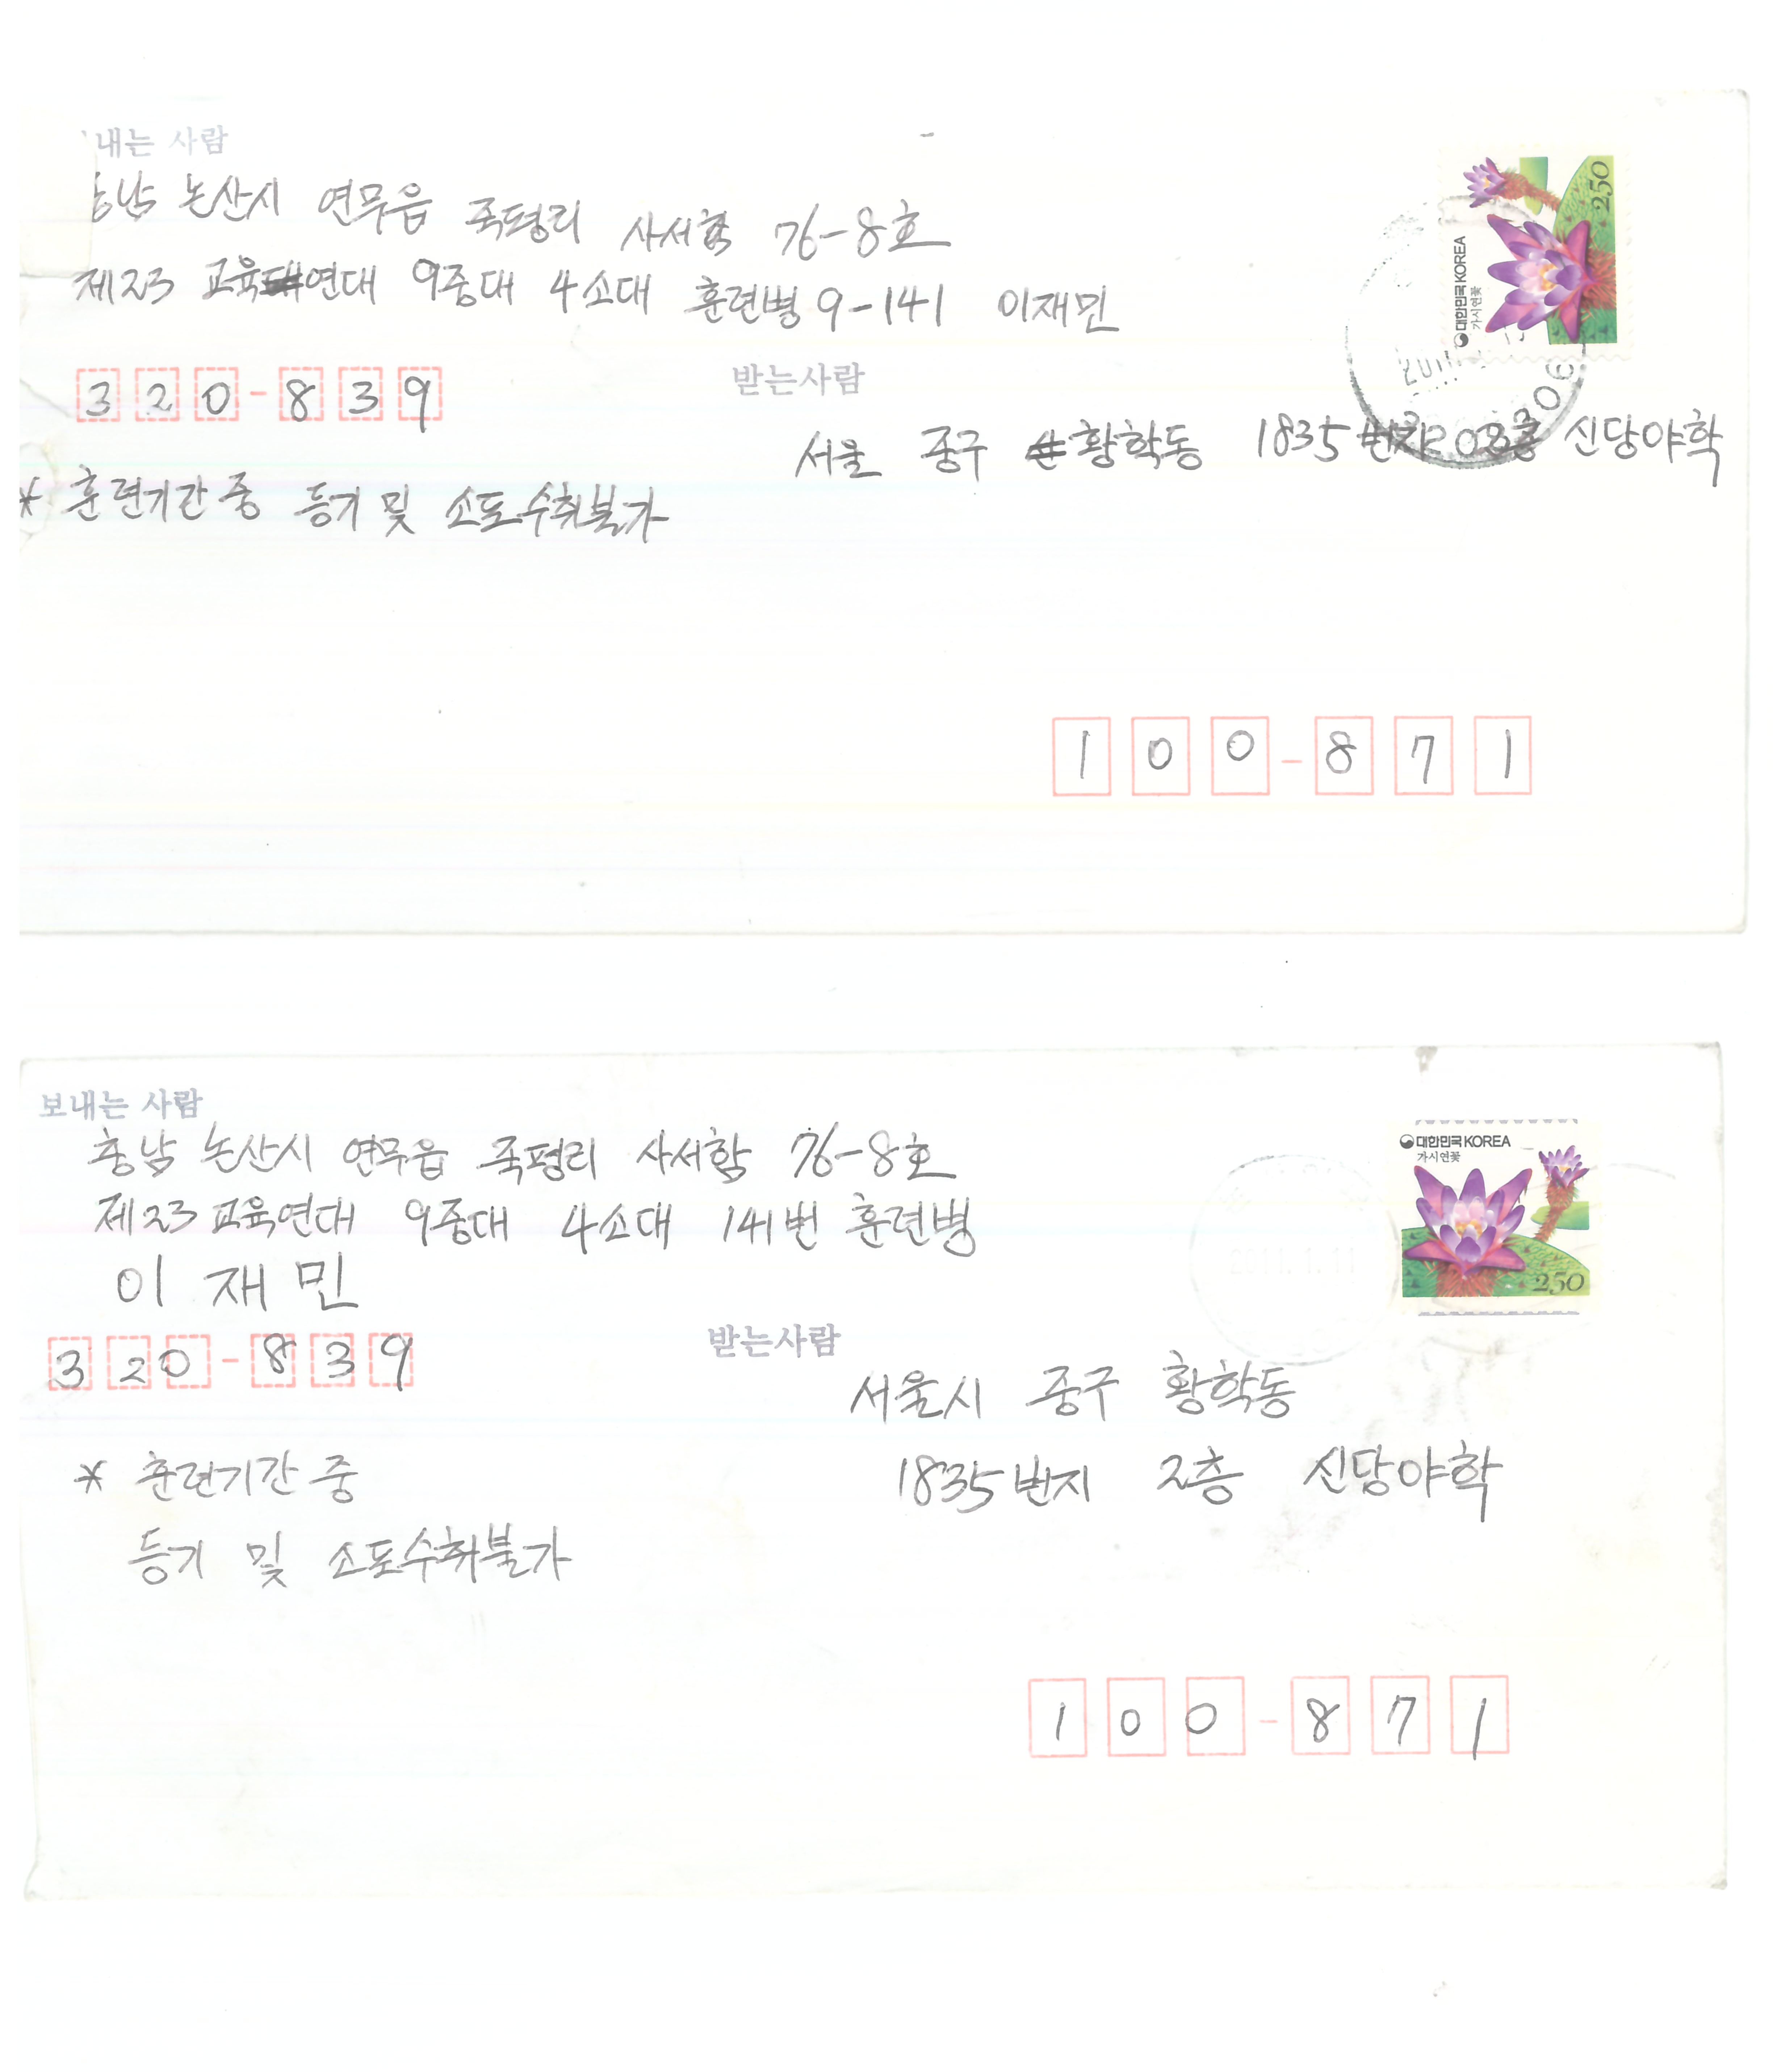 내는 사람
충남 논산시 연무읍 죽평리 사서함 76-8호
제23 교육연대 9중대 4소대 훈련병 9-141 이재민
320-839
* 훈련기간 중 등기 및 소포수취불가
대한민국 KOREA
가시연꽃
250
받는사람
서울 중구 황학동 1835 번지 신당야학
100-871
보내는 사람
충남 논산시 연무읍 죽평리 사서함 76-8호
제23교육연대 9중대 4소대 141번 훈련병
이재민
320-839
* 훈련기간 중
등기 및 소포수취불가
대한민국 KOREA
가시연꽃
250
2011.1.11
받는사람
서울시 중구 황학동
1835번지 2층 신당야학
100-871